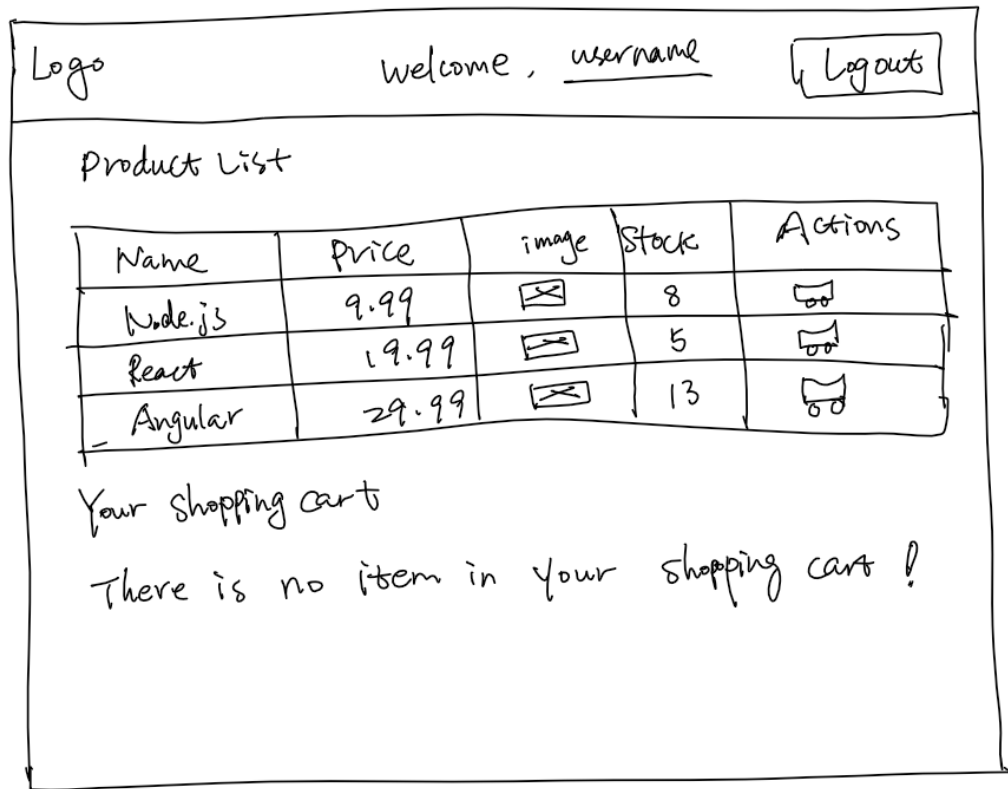 Logo welcome, username Logout
Product List
Name Price image Stock Actions
Node.js 9.99 8
React 19.99 5
Angular 29.99 13
Your shopping cart
There is no item in your shopping cart !